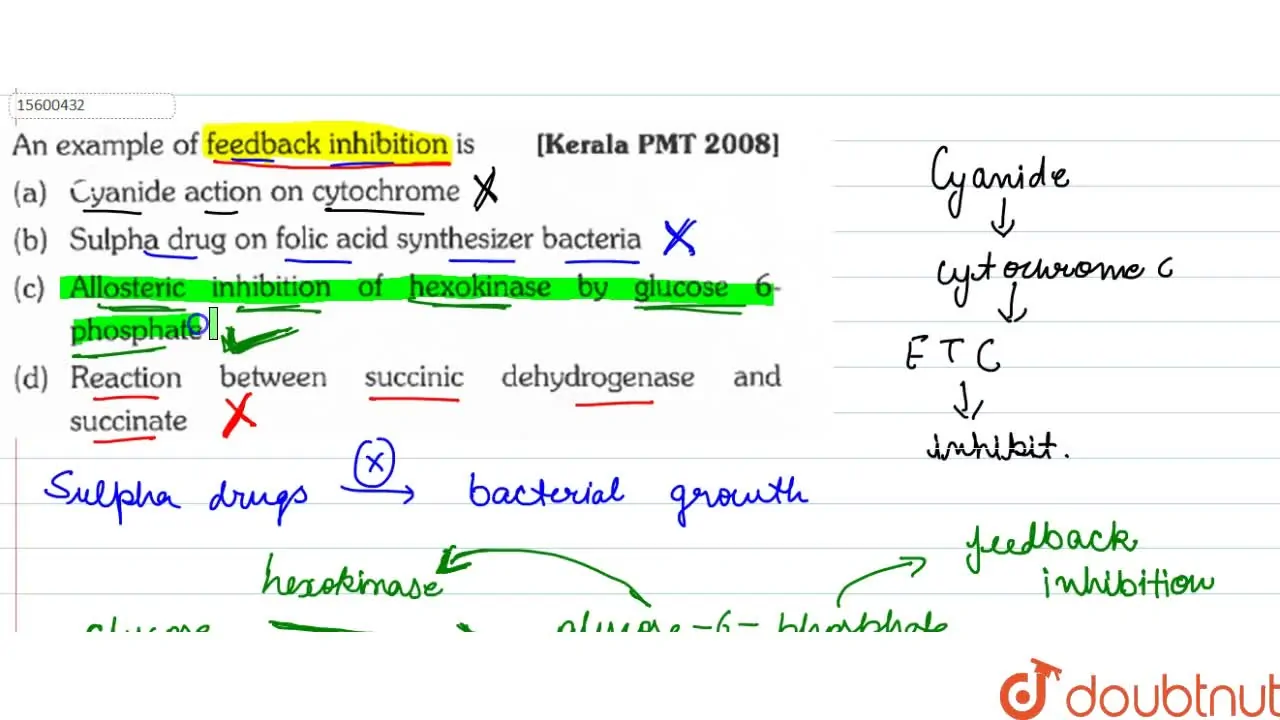 15600432
An example of feedback inhibition is [Kerala PMT 2008]
(a) Cyanide action on cytochrome X
(b) Sulpha drug on folic acid synthesizer bacteria X
(c) Allosteric inhibition of hexokinase by glucose 6-
phosphate
(d) Reaction between succinic dehydrogenase and
succinate X
Cyanide
cytochrome c
ETC
inhibit.
Sulpha drugs x bacterial growth
feedback
inhibition
hexokinase
glucose glucose-6-phosphate
doubtnut